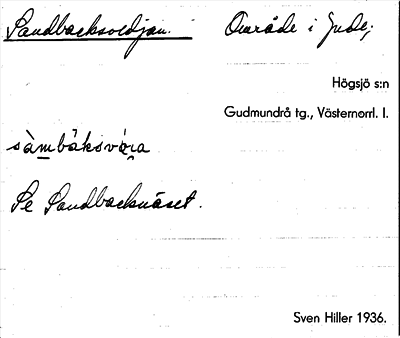 Sandbacksvedjan. Område i Gude;
Högsjö s:n
Gudmundrå tg., Västernorrl. l.
sàmbàksvóra
Se Sandbacknäset.
Sven Hiller 1936.